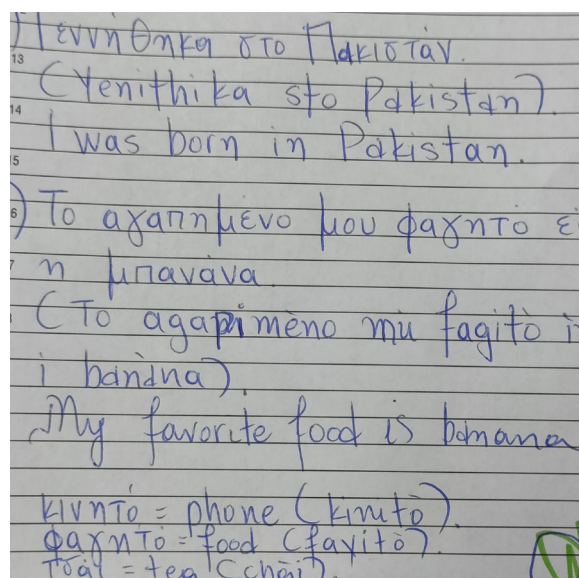 ) Γεννήθηκα στο Πακιστάν.
13
(Yenithika sto Pakistan).
14
I was born in Pakistan.
15
6) Το αγαπημένο μου φαγητό εί
η μπανάνα
(To agapimèno mù fagitò ì
i banàna).
My favorite food is banana
κινητό = phone (kinitò).
φαγητό = food (fayitò).
τσάι = tea (chài).